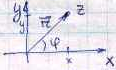 y
y
r⃗
z
φ
x
x